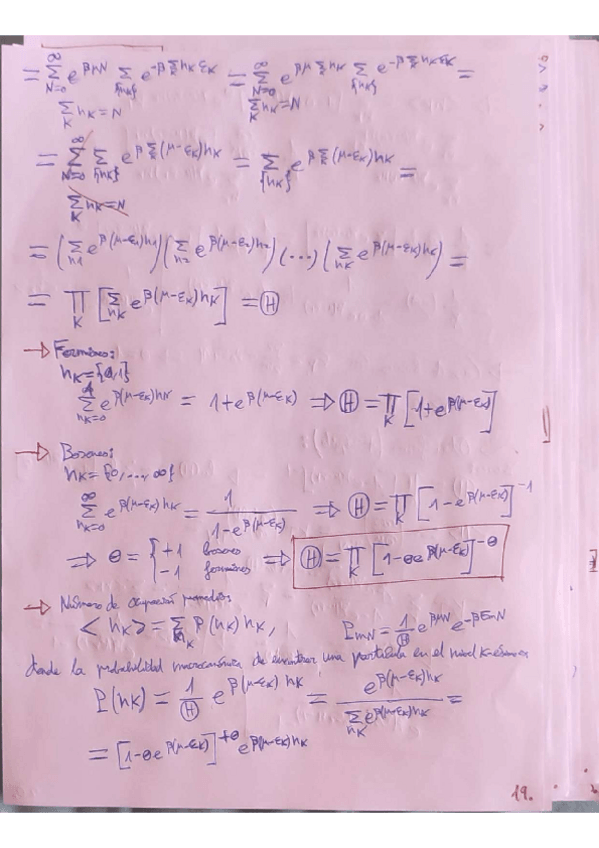 = ∑_{N=0}^{∞} e^{βμN} ∑_{{n_K}} e^{-β∑_K n_K ε_K} = ∑_{N=0}^{∞} e^{βμ∑_K n_K} ∑_{{n_K}} e^{-β∑_K n_K ε_K} =
∑_K n_K = N ∑_K n_K = N
= ∑_{N=0}^{∞} ∑_{{n_K}} e^{β∑_K (μ-ε_K) n_K} = ∑_{{n_K}} e^{β∑_K (μ-ε_K) n_K} =
∑_K n_K = N
= (∑_{n_1} e^{β(μ-ε_1)n_1}) (∑_{n_2} e^{β(μ-ε_2)n_2}) (...) (∑_{n_K} e^{β(μ-ε_K)n_K}) =
= ∏_K [∑_{n_K} e^{β(μ-ε_K)n_K}] = Ⓗ
→ Fermiones:
n_K = {0,1}
∑_{n_K=0}^{1} e^{β(μ-ε_K)n_K} = 1+e^{β(μ-ε_K)} ⇒ Ⓗ = ∏_K [1+e^{β(μ-ε_K)}]
→ Bosones:
n_K = {0,...,∞}
∑_{n_K=0}^{∞} e^{β(μ-ε_K)n_K} = 1/(1-e^{β(μ-ε_K)}) ⇒ Ⓗ = ∏_K [1-e^{β(μ-ε_K)}]^{-1}
⇒ θ = { +1 bosones -1 fermiones ⇒ Ⓗ = ∏_K [1-θe^{β(μ-ε_K)}]^{-θ}
→ Número de ocupación promedio:
<n_K> = ∑_{n_K} P(n_K) n_K, P_{mN} = 1/Ⓗ e^{βμN} e^{-βE_{mN}}
donde la probabilidad macrocanónica de encontrar una partícula en el nivel K-ésimo es
P(n_K) = 1/Ⓗ e^{β(μ-ε_K)n_K} = e^{β(μ-ε_K)n_K} / ∑_{n_K} e^{β(μ-ε_K)n_K} =
= [1-θe^{β(μ-ε_K)}]^{+θ} e^{β(μ-ε_K)n_K}
19.